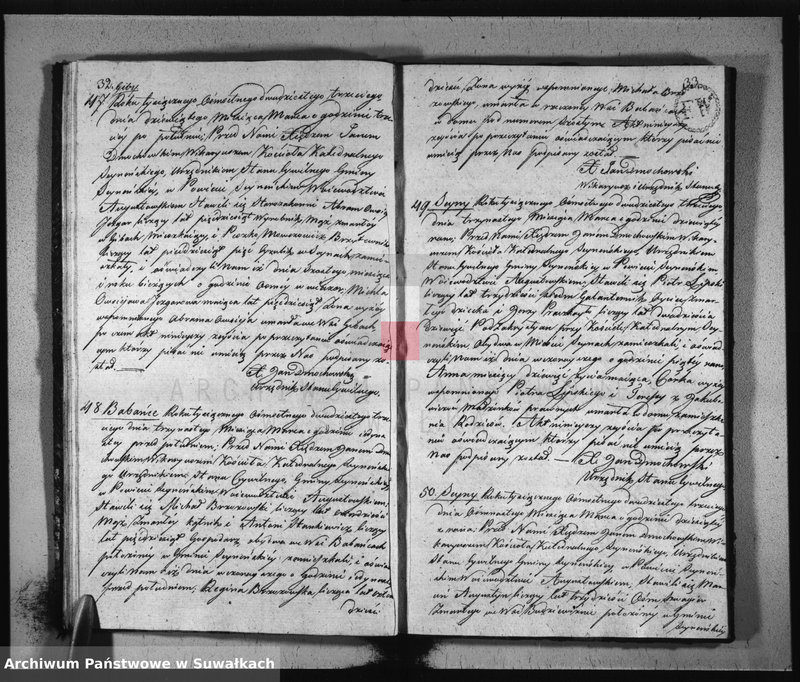 32. Giby
47 Roku tysiącznego Ośmsetnego dwudziestego trzeciego
dnia dziewiątego Miesiąca Marca o godzinie trze
ciey po południu, Przed Nami Xiędzem Janem
Dmochowskim Wikaryuszem, Kościoła Katedralnego
Seyneńskiego, Urzędnikiem Stanu Cywilnego Gminy
Seyneńskiey, w Powiecie Seyneńskim Woiewództwie
Augustowskim Stawili się Starozakonni Abram
liczący lat pięćdziesiąt Wyrobnik, Mąż zmarłey
w Gibach Mieszkaiący, i
liczący lat pięćdziesiąt pięć w Seynach zamie
szkały, i oświadczyli Nam iż dnia szóstego miesiąca
i roku bieżących o godzinie ósmey w wieczor, Michla
maiąca lat pięćdziesiąt Żona wyżey
wspomnianego Abrama umarła we Wsi Gibach
po czem Akt ninieyszy zeyścia po przeczytaniu oświadczaią
cym którzy pisać nie umieią przez Nas podpisany zo
stał.
X. Jan Dmochowski
Urzędnik Stanu Cywilnego.
48 Babańce Roku tysiącznego Ośmsetnego dwudziestego trze
ciego dnia trzynastego Miesiąca Marca o godzinie iedyna
stey przed południem, Przed Nami Xiędzem Janem Dmo
chowskim Wikaryuszem Kościoła Katedralnego Seyneńskie
go Urzędnikiem Stanu Cywilnego, Gminy Seyneńskiey,
w Powiecie Seyneńskim, Woiewództwie Augustowskim,
Stawili się Michał Brzozowski liczący lat
Mąż Zmarłey kątnik i Antoni Stankiewicz liczący
lat pięćdziesiąt Gospodarz obydwa we Wsi Babańcach
położoney w Gminie Seyneńskiey zamieszkali, i oświad
czyli Nam iż dnia wczorayszego o Godzinie iedynastey
przed południem, Regina Brzozowska licząca lat
dzieści
33
dzieści Żona wyżey wspomnianego Michała Brzo
zowskiego umarła w rzeczoney Wsi Babańcach
w domu pod numerem Akt ninieyszy
zeyścia po przeczytaniu oświadczaiącym którzy pisać nie
umieią przez Nas podpisany został
X. Jan Dmochowski
Wikaryusz i Urzędnik Stanu Cy
49 Seyny Roku tysiącznego Ośmsetnego dwudziestego trzeciego
dnia trzynastego Miesiąca Marca o godzinie dziewiątey
rano, Przed Nami Xiędzem Janem Dmochowskim Wikary
uszem Kościoła Katedralnego Seyneńskiego, Urzędnikiem
Stanu Cywilnego Gminy Seyneńskiey w Powiecie Seyneńskim
Woiewództwie Augustowskim, Stawili się Piotr Lipski
liczący lat trzydzieści Oyciec zmar
łego dziecka i Jerzy liczący lat dwadzieścia
dziewięć przy Kościele Katedralnym Sey
neńskim Obydwa w Mieście Seynach zamieszkali i oświad
czyli Nam iż dnia wczorayszego o godzinie piątey rano
Anna miesięcy dziewięć życia maiąca Córka wyżey
wspomnianego Piotra Lipskiego i Józefy z Jakubo
wiczów Małżonków prawnych umarła w domu zamieszka
nia Rodziców. Akt ninieyszy zeyścia po przeczyta
niu oświadczaiącym którzy pisać nie umieią przez
Nas podpisany został
X. Jan Dmochowski
Urzędnik Stanu Cywilnego.
50. Seyny Roku tysiącznego Ośmsetnego dwudziestego trzeciego
dnia Marca o godzinie dziewiątey
z rana Przed Nami Xiędzem Janem Dmochowskim Wi
karyuszem Kościoła Katedralnego Seyneńskiego, Urzędnikiem
Stanu Cywilnego Gminy Seyneńskiey w Powiecie Seyneń
skim Woiewództwie Augustowskim, Stawili się
Augustyn liczący lat trzydzieści Ośm
Zmarłego we Wsi położoney w Gminie
Seyneńskiey
Archiwum Państwowe w Suwałkach